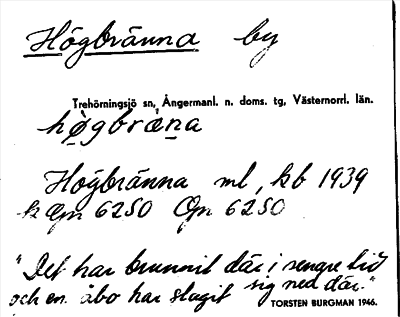 Högbränna by
Trehörningsjö sn, Ångermanl. n. doms. tg, Västernorrl. län.
hø̀gbræ̀na
Högbränna ml, kb 1939
k Gm 6250 Gm 6250
"Det har brunnit där i sengre tid
och en åbo har slagit sig ned där."
TORSTEN BURGMAN 1946.